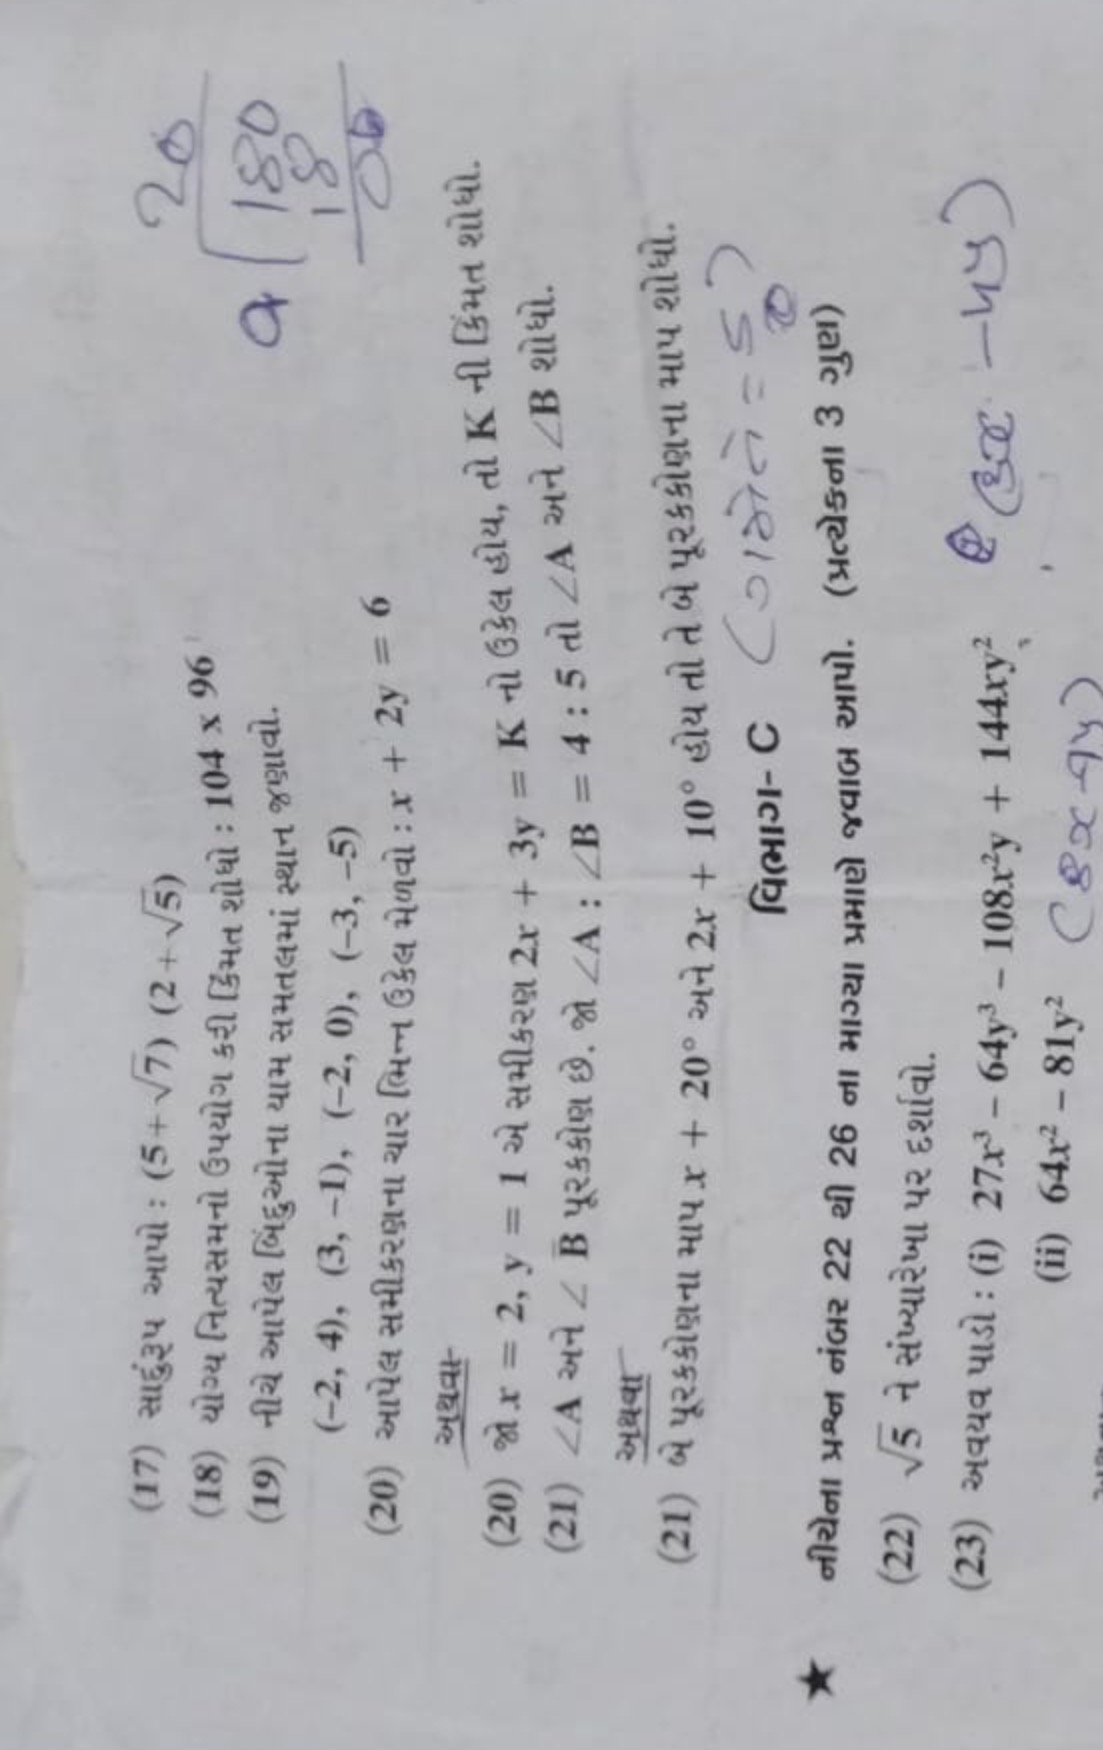 20
9 180
18
00
(17) સાદુંરૂપ આપો : (5+√7) (2+√5)
(18) યોગ્ય નિત્યસમનો ઉપયોગ કરી કિંમત શોધો : 104 x 96
(19) નીચે આપેલ બિંદુઓના યામ સમતલમાં સ્થાન જણાવો.
(-2, 4), (3, -1), (-2, 0), (-3, -5)
(20) આપેલ સમીકરણના ચાર ભિન્ન ઉકેલ મેળવો : x + 2y = 6
અથવા
(20) જો x = 2, y = 1 એ સમીકરણ 2x + 3y = K નો ઉકેલ હોય, તો K ની કિંમત શોધો.
(21) ∠A અને ∠B પૂરકકોણ છે. જો ∠A : ∠B = 4 : 5 તો ∠A અને ∠B શોધો.
અથવા
(21) બે પૂરકકોણના માપ x + 20° અને 2x + 10° હોય તો તે બે પૂરકકોણના માપ શોધો.
વિભાગ- C
★ નીચેના પ્રશ્ન નંબર 22 થી 26 ના માગ્યા પ્રમાણે જવાબ આપો. (પ્રત્યેકના 3 ગુણ)
(22) √5 ને સંખ્યારેખા પર દર્શાવો.
(23) અવયવ પાડો : (i) 27x³ – 64y³ – 108x²y + 144xy²
(ii) 64x² – 81y² (8x-9y)